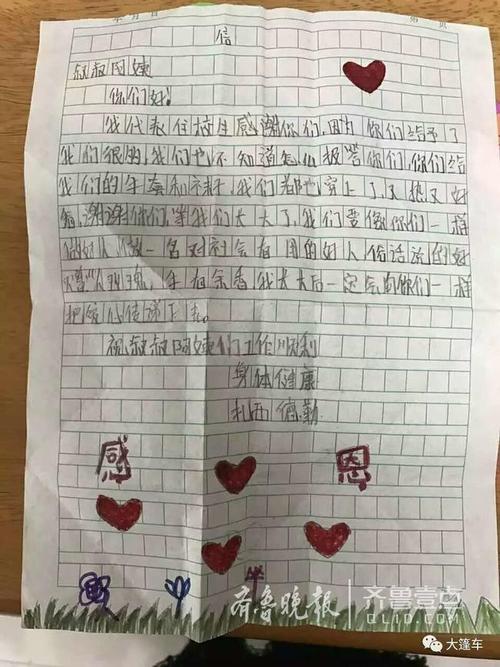 年 月 日 第 页
信
叔叔阿姨
你们好!
我代表住校生感谢你们,因为你们给予了
我们很多,我们也不知道怎么报答你们,你们给
我们的手套和袜子,我们都穿上了,又热又好
看,谢谢你们,等我们长大了,我们要像你们一样
做好人,做一名对社会有用的好人俗话说的好
人玫瑰,手有余香,我长大后一定会向你们一样
把爱心传递下去。
祝叔叔阿姨们工作顺利
身体健康
扎西德勒
感 恩
齐鲁晚报 齐鲁壹点
QLYD.COM
大篷车